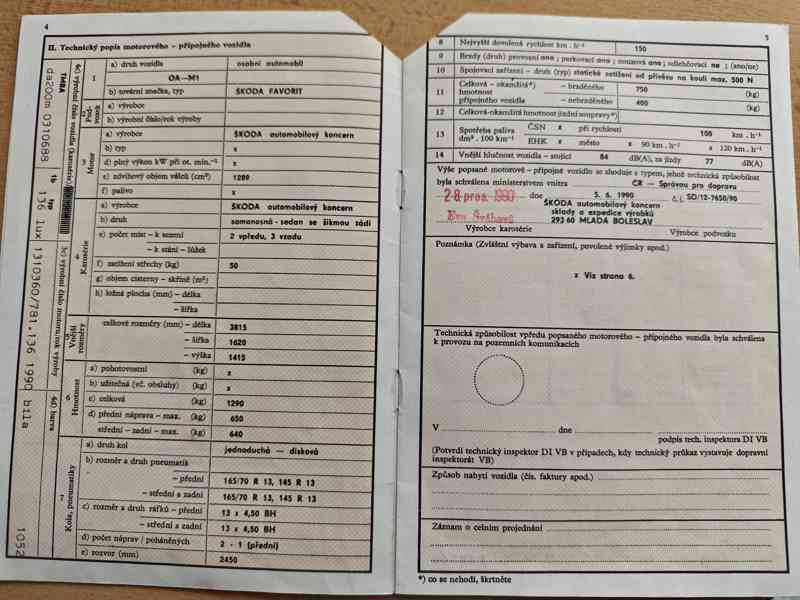 4
II. Technický popis motorového – přípojného vozidla
1
a) druh vozidla
osobní automobil
OA—M1
b) tovární značka, typ
ŠKODA FAVORIT
2 Podvozek
a) výrobce
b) výrobní číslo/rok výroby
3 Motor
a) výrobce
ŠKODA automobilový koncern
b) typ
x
d) plný výkon kW při ot. min.⁻¹
x
e) zdvihový objem válců (cm³)
1289
f) palivo
x
4 Karosérie
a) výrobce
ŠKODA automobilový koncern
b) druh
samonosná-sedan se šikmou zádí
e) počet míst – k sezení
2 vpředu, 3 vzadu
– k stání – lůžek
f) zatížení střechy (kg)
50
g) objem cisterny – skříně (m³)
h) ložná plocha (mm) – délka
– šířka
5 Vnější rozměry
celkové rozměry (mm) – délka
3815
– šířka
1620
– výška
1415
6 Hmotnost
a) pohotovostní (kg)
x
b) užitečná (vč. obsluhy) (kg)
x
c) celková (kg)
1290
d) přední náprava – max. (kg)
650
střední – zadní – max. (kg)
640
7 Kola, pneumatiky
a) druh kol
jednoduchá — disková
b) rozměr a druh pneumatik
– přední
165/70 R 13, 145 R 13
– střední a zadní
165/70 R 13, 145 R 13
c) rozměr a druh ráfků – přední
13 x 4,50 BH
– střední a zadní
13 x 4,50 BH
d) počet náprav / poháněných
2 - 1 (přední)
e) rozvor (mm)
2450
TMBA
6c) výrobní číslo vozidla (karosérie)
1b typ
3c) výrobní číslo motoru/rok výroby
4d) barva
da200m 0310688 136 lux 1310360/781.136 1990 bílá
1052
5
8 Nejvyšší dovolená rychlost km . h⁻¹
150
9 Brzdy (druh) provozní ano ; parkovací ano ; nouzová ano ; odlehčovací ne ; (ano/ne)
10 Spojovací zařízení – druh (typ) statické zatížení od přívěsu na kouli max. 500 N
11 Celková – okamžitá*) hmotnost přípojného vozidla
– brzděného
750
(kg)
– nebrzděného
400
(kg)
12 Celková-okamžitá hmotnost jízdní soupravy*)
13 Spotřeba paliva dm³ . 100 km⁻¹
ČSN x při rychlosti 100 km . h⁻¹
EHK x město x 90 km . h⁻¹ x 120 km . h⁻¹
14 Vnější hlučnost vozidla – stojící 84 dB(A), za jízdy 77 dB(A)
Výše popsané motorové – přípojné vozidlo se shoduje s typem, jehož technická způsobilost
byla schválena ministerstvem vnitra ČR — Správou pro dopravu
28 pros. 1990
dne 5. 6. 1990 č. j. SD/12-7650/90
ŠKODA automobilový koncern
sklady a expedice výrobků
293 60 MLADÁ BOLESLAV
Výrobce karosérie
Výrobce podvozku
Poznámka (Zvláštní výbava a zařízení, povolené výjimky apod.)
x Viz strana 6.
Technická způsobilost vpředu popsaného motorového – přípojného vozidla byla schválena
k provozu na pozemních komunikacích
V dne
podpis tech. inspektora DI VB
(Potvrdí technický inspektor DI VB v případech, kdy technický průkaz vystavuje dopravní
inspektorát VB)
Způsob nabytí vozidla (čís. faktury apod.)
Záznam o celním projednání
*) co se nehodí, škrtněte